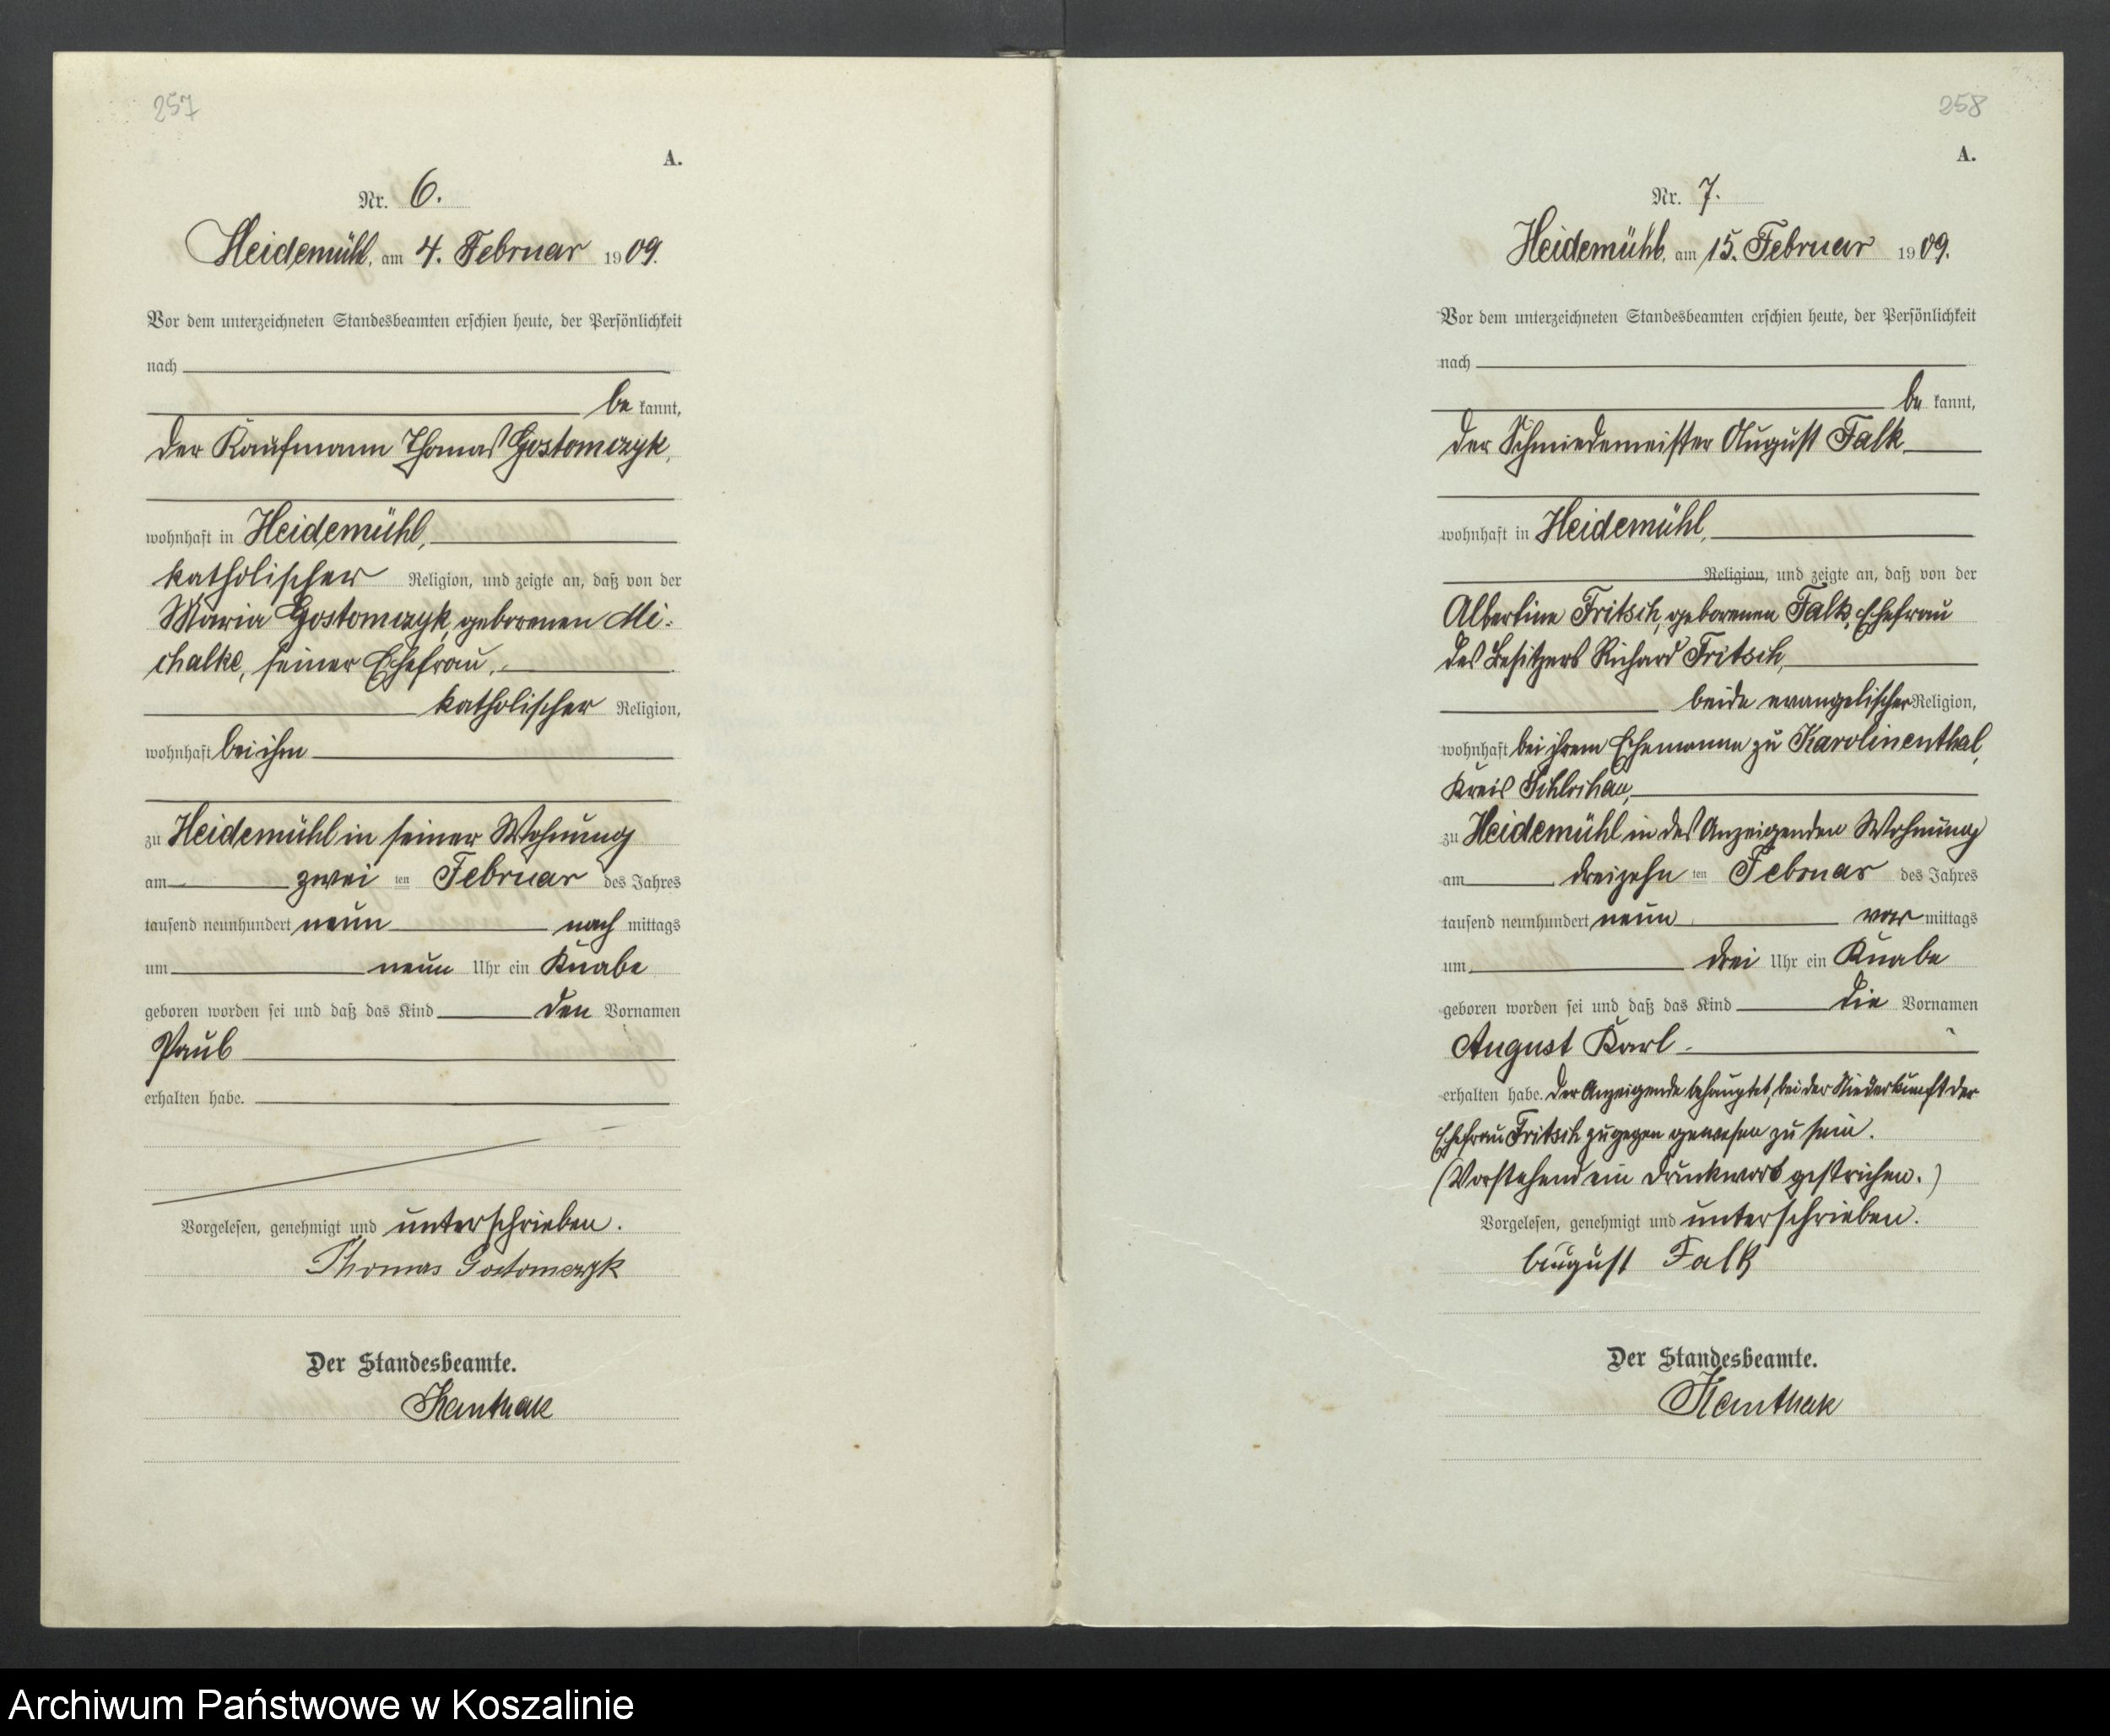 257
A.
Nr. 6.
Heidemühl, am 4. Februar 1909.
Vor dem unterzeichneten Standesbeamten erschien heute, der Persönlichkeit
nach
be kannt,
der Kaufmann Thomas Gostomczyk,
wohnhaft in Heidemühl,
katholischer Religion, und zeigte an, daß von der
Maria Gostomczyk, geborenen Mi-
chalke, seiner Ehefrau,
katholischer Religion,
wohnhaft bei ihm
zu Heidemühl in seiner Wohnung
am zwei ten Februar des Jahres
tausend neunhundert neun nach mittags
um neun Uhr ein Knabe
geboren worden sei und daß das Kind den Vornamen
Paul
erhalten habe.
Vorgelesen, genehmigt und unterschrieben.
Thomas Gostomczyk
Der Standesbeamte.
Kanthak
258
A.
Nr. 7.
Heidemühl, am 15. Februar 1909.
Vor dem unterzeichneten Standesbeamten erschien heute, der Persönlichkeit
nach
be kannt,
der Schmiedemeister August Falk
wohnhaft in Heidemühl,
Religion, und zeigte an, daß von der
Albertine Fritsch, geborenen Falk, Ehefrau
des Besitzers Richard Fritsch,
beide evangelischer Religion,
wohnhaft bei ihrem Ehemanne zu Karolinenthal,
Kreis Schlochau,
zu Heidemühl in des Anzeigenden Wohnung
am dreizehn ten Februar des Jahres
tausend neunhundert neun vor mittags
um drei Uhr ein Knabe
geboren worden sei und daß das Kind die Vornamen
August Karl
erhalten habe. Der Anzeigende behauptet, bei der Niederkunft der
Ehefrau Fritsch zugegen gewesen zu sein.
(Vorstehend ein Druckwort gestrichen.)
Vorgelesen, genehmigt und unterschrieben.
August Falk
Der Standesbeamte.
Kanthak
Archiwum Państwowe w Koszalinie